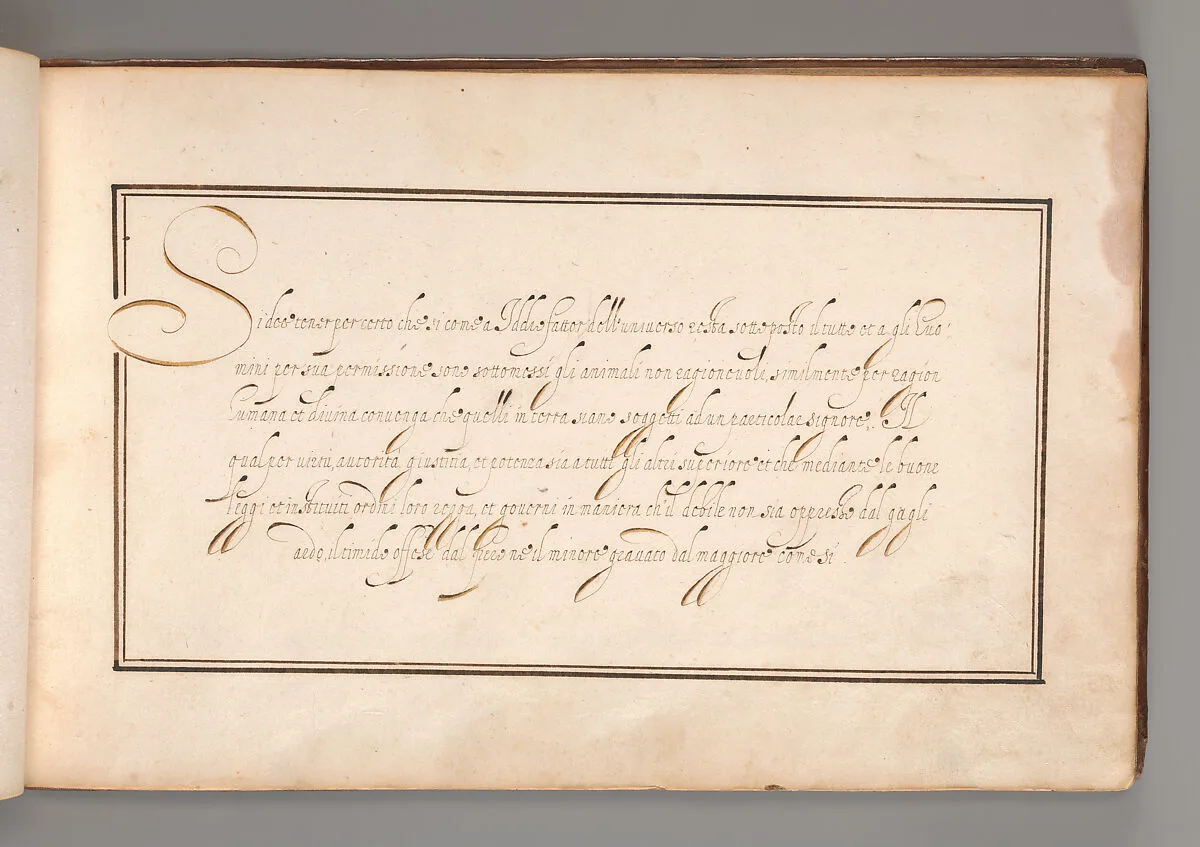 Si dee tener per certo che si come a Iddio fattor dell'universo resta sottoposto il tutto et a gli huo:
mini per sua permissione sono sottomessi gli animali non ragionevoli, similmente per ragion
humana et divina convenga che quelli in terra siano soggetti ad un particolar signore. Il
qual per virtù, autorità, giustitia, et potenza sia a tutti gli altri superiore et che mediante le buone
leggi et instituiti ordini loro regga, et governi in maniera ch'il debile non sia oppresso dal gagli
ardo, il timido offeso dal fiero ne il minore gravato dal maggiore come si.